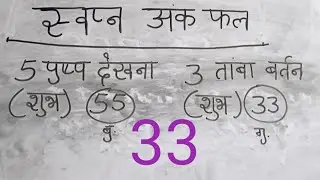 स्वप्न अंक फल
5 पुष्प देखना 3 तांबा बर्तन
(शुभ) 55 (शुभ) 33
बु. गु.
33